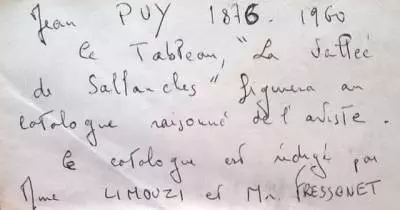 Jean PUY 1876. 1960
Le Tableau, "La Vallée
de Sallanches" figurera au
catalogue raisonné de l'artiste.
Le catalogue est rédigé par
Mme LIMOUZI et Mr. FRESSONET